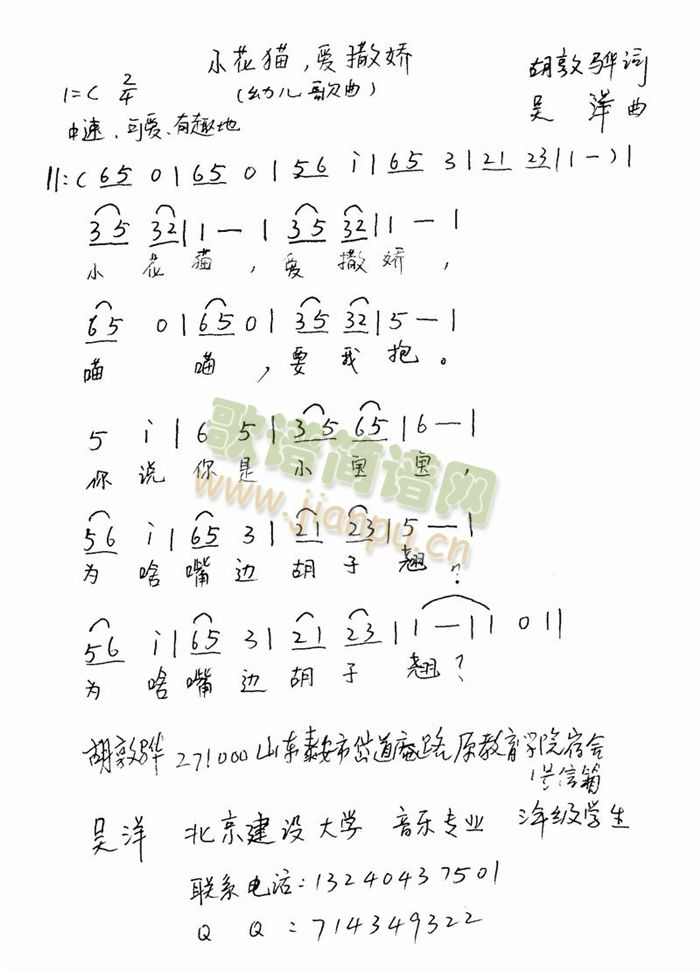 小花猫，爱撒娇
(幼儿歌曲)
胡敦骅词
吴洋曲
1=C 2/4
中速、可爱、有趣地
||:( 65 0 | 65 0 | 56 i | 65 3 | 21 23 | 1 - ) |
35 32 | 1 - | 35 32 | 1 - |
小花猫，爱撒娇，
65 0 | 65 0 | 35 32 | 5 - |
喵喵，要我抱。
5 i | 6 5 | 35 65 | 6 - |
你说你是小宝宝，
56 i | 65 3 | 21 23 | 5 - |
为啥嘴边胡子翘？
56 i | 65 3 | 21 23 | 1 - | 1 0 ||
为啥嘴边胡子翘？
歌谱简谱网
www.jianpu.cn
胡敦骅 271000山东泰安市岱道庵路原教育学院宿舍
信箱
吴洋 北京建设大学 音乐专业 年级学生
联系电话:13240437501
QQ:714349322